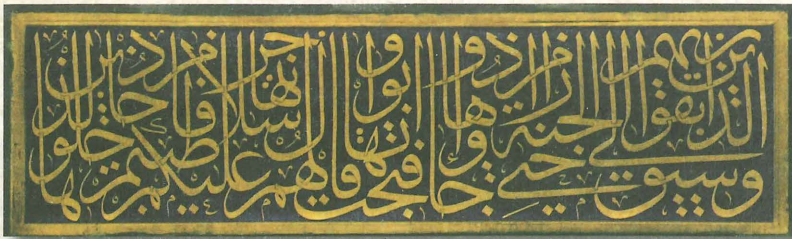 وسيق الذين اتقوا ربهم الى الجنة زمرا حتى اذا جاؤها وفتحت ابوابها وقال لهم خزنتها سلام عليكم طبتم فادخلوها خالدين